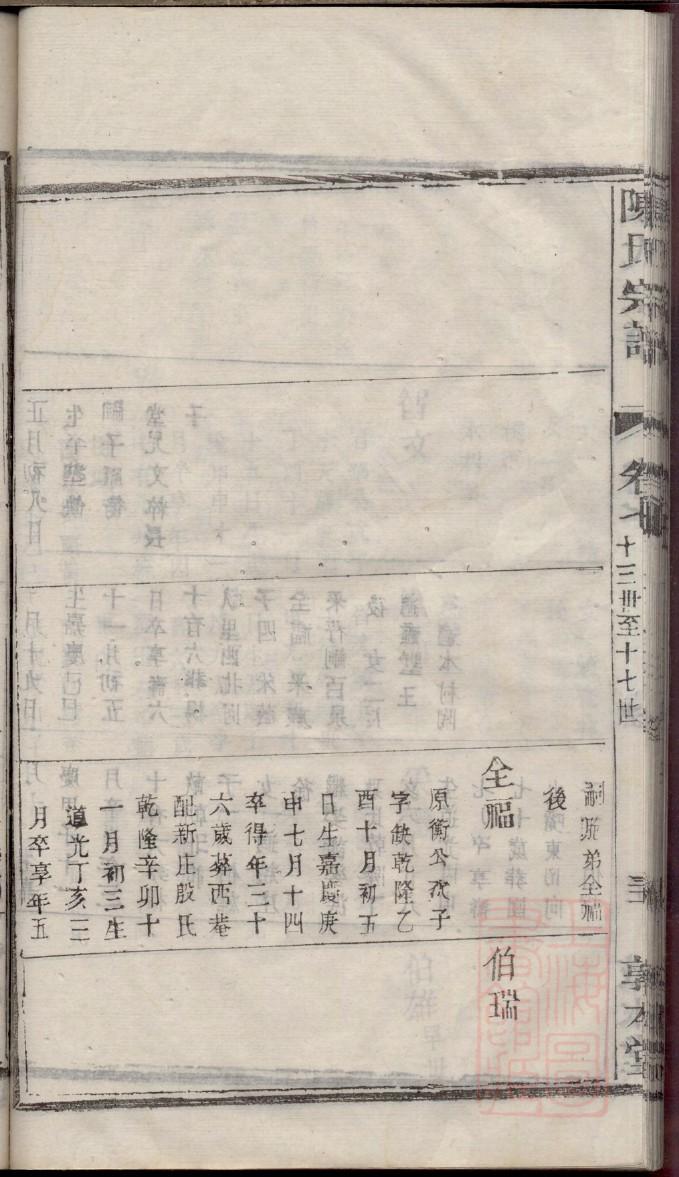 陳氏宗譜
卷七
十三世至十七世
敦本堂
嗣胞弟全福
後
全福
伯瑞
原衡公次子
字缺乾隆乙
酉十月初五
日生嘉慶庚
申七月十四
卒得年三十
六歲葬西菴
配新庄殷氏
乾隆辛卯十
一月初三生
道光丁亥三
月卒享年五